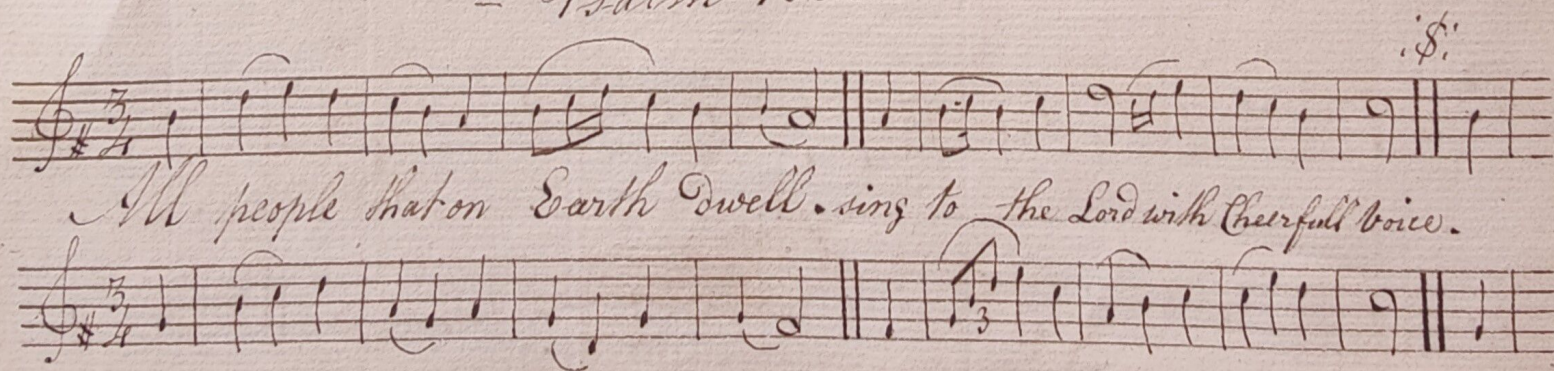 Psalm
3/4
All people that on Earth dwell. sing to the Lord with Cheerfull Voice.
3/4
3